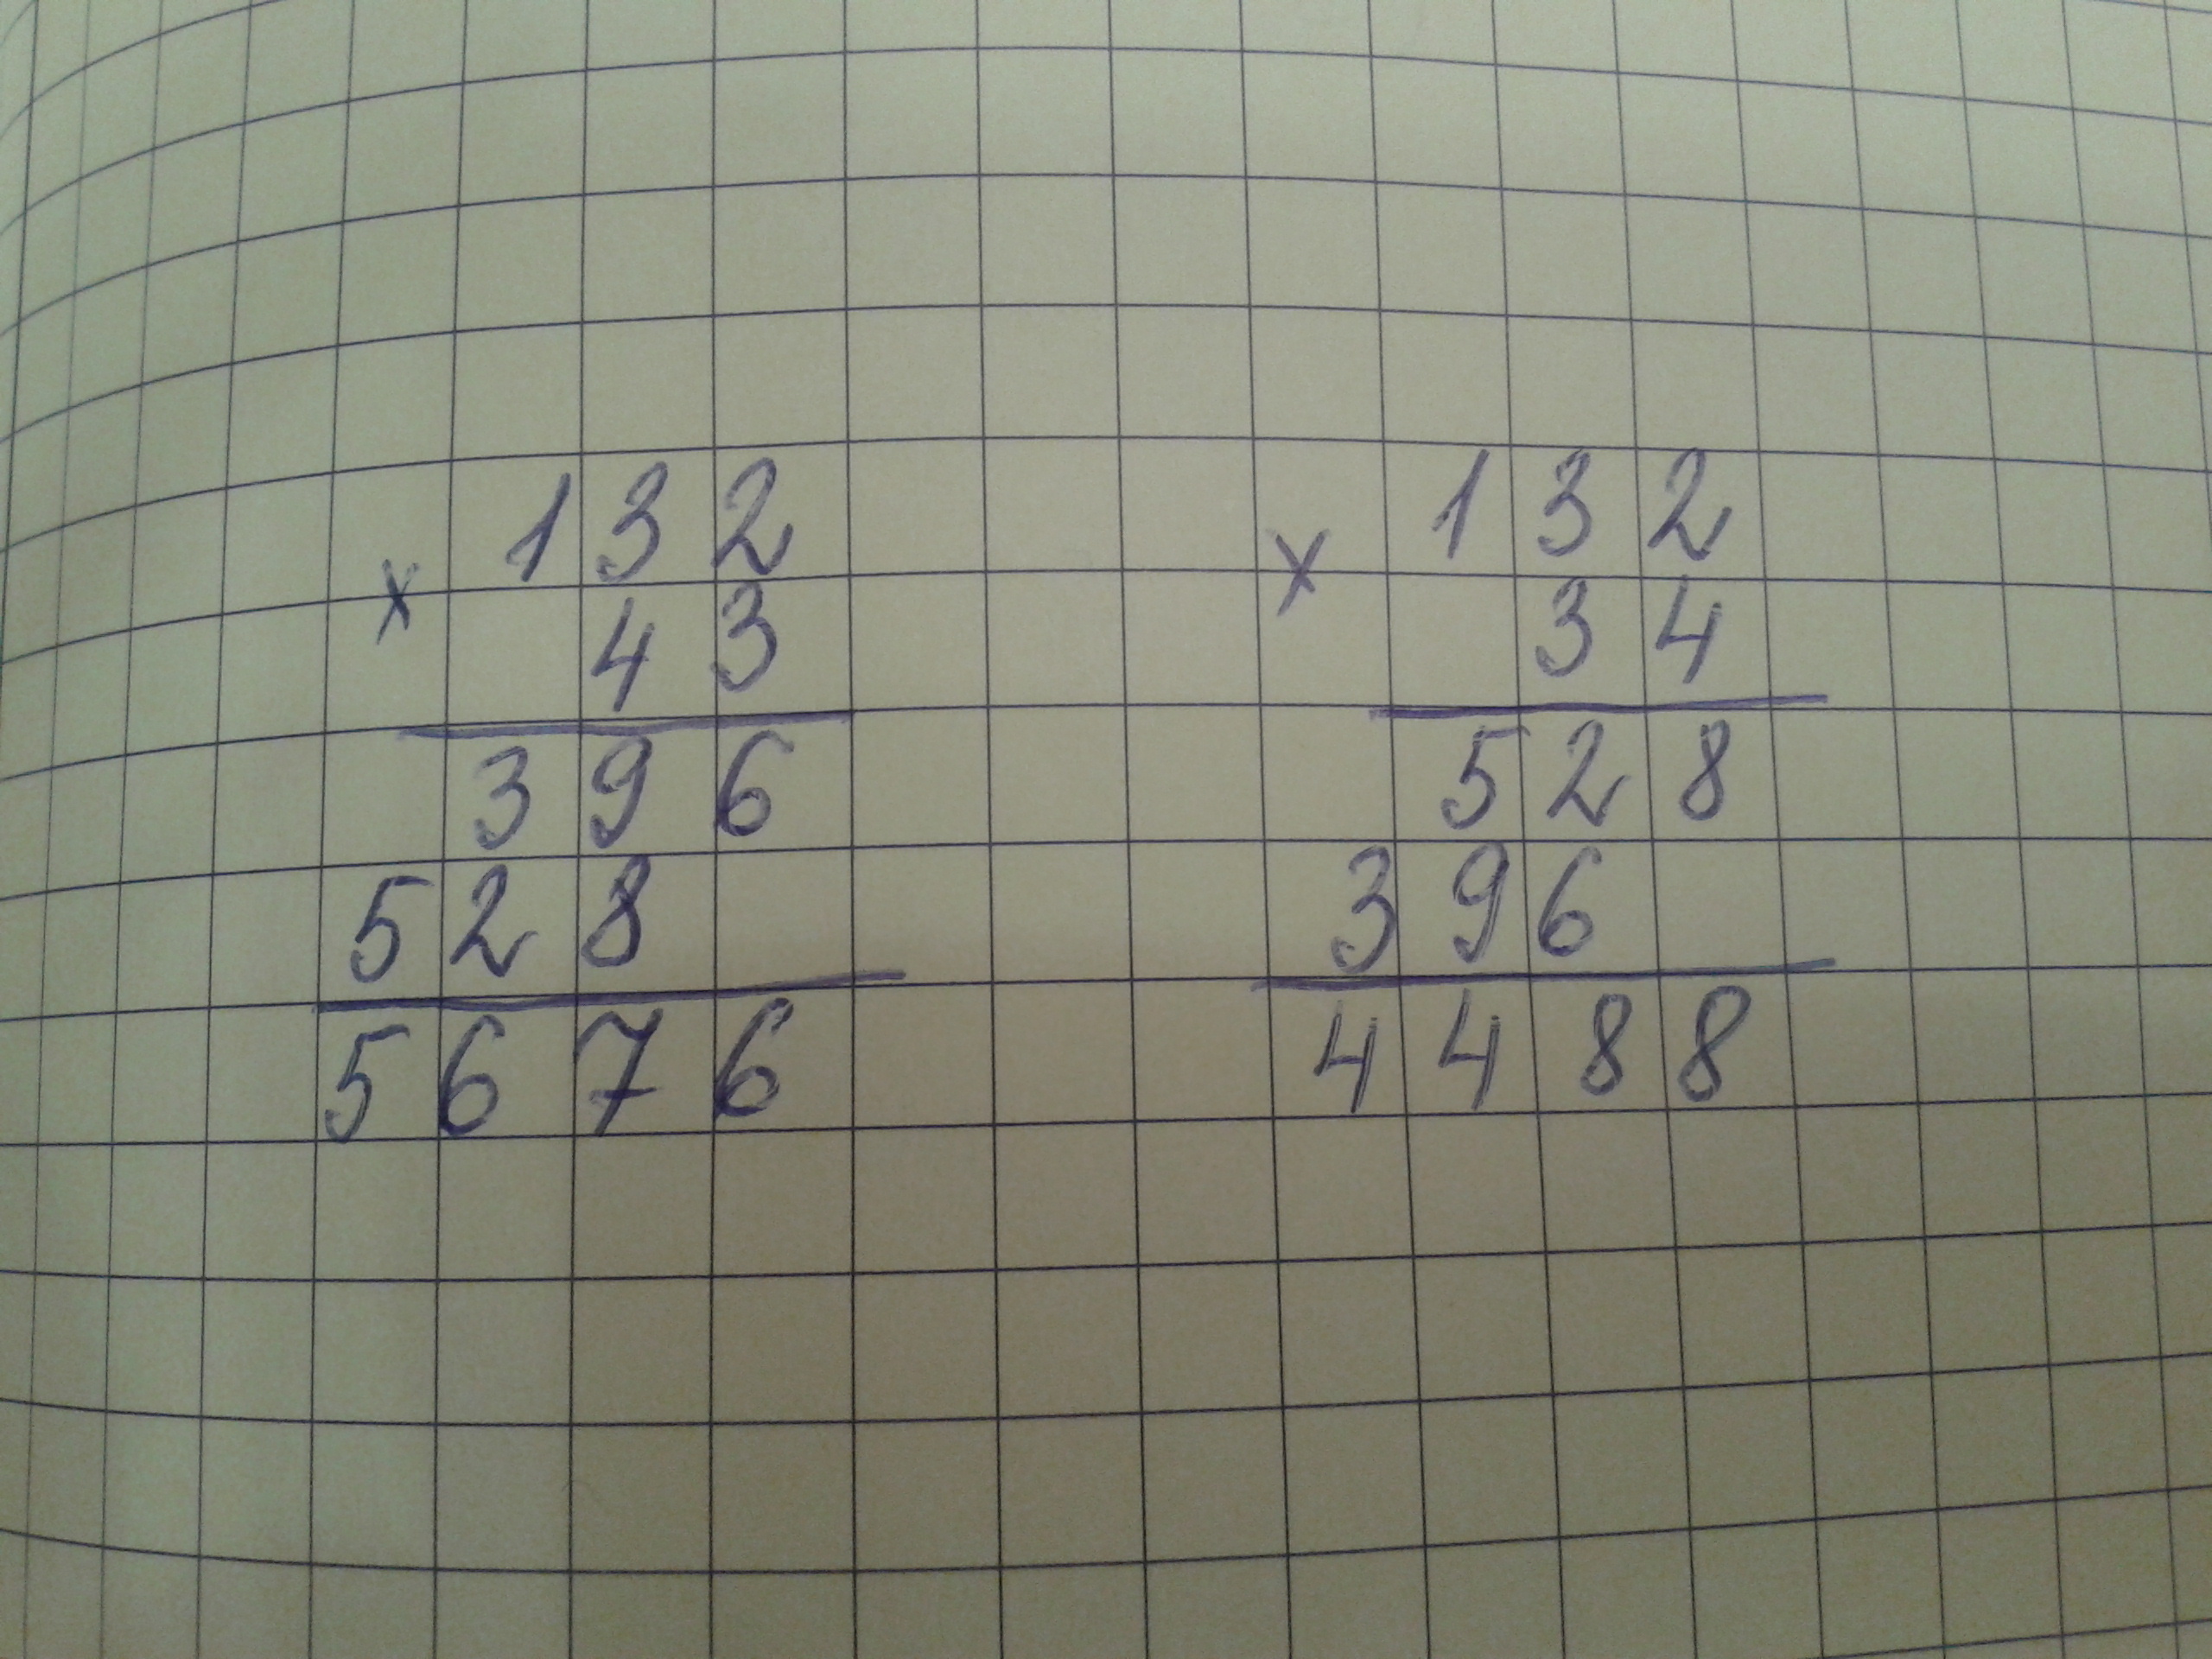 132
x
43
396
528
5676
132
x
34
528
396
4488